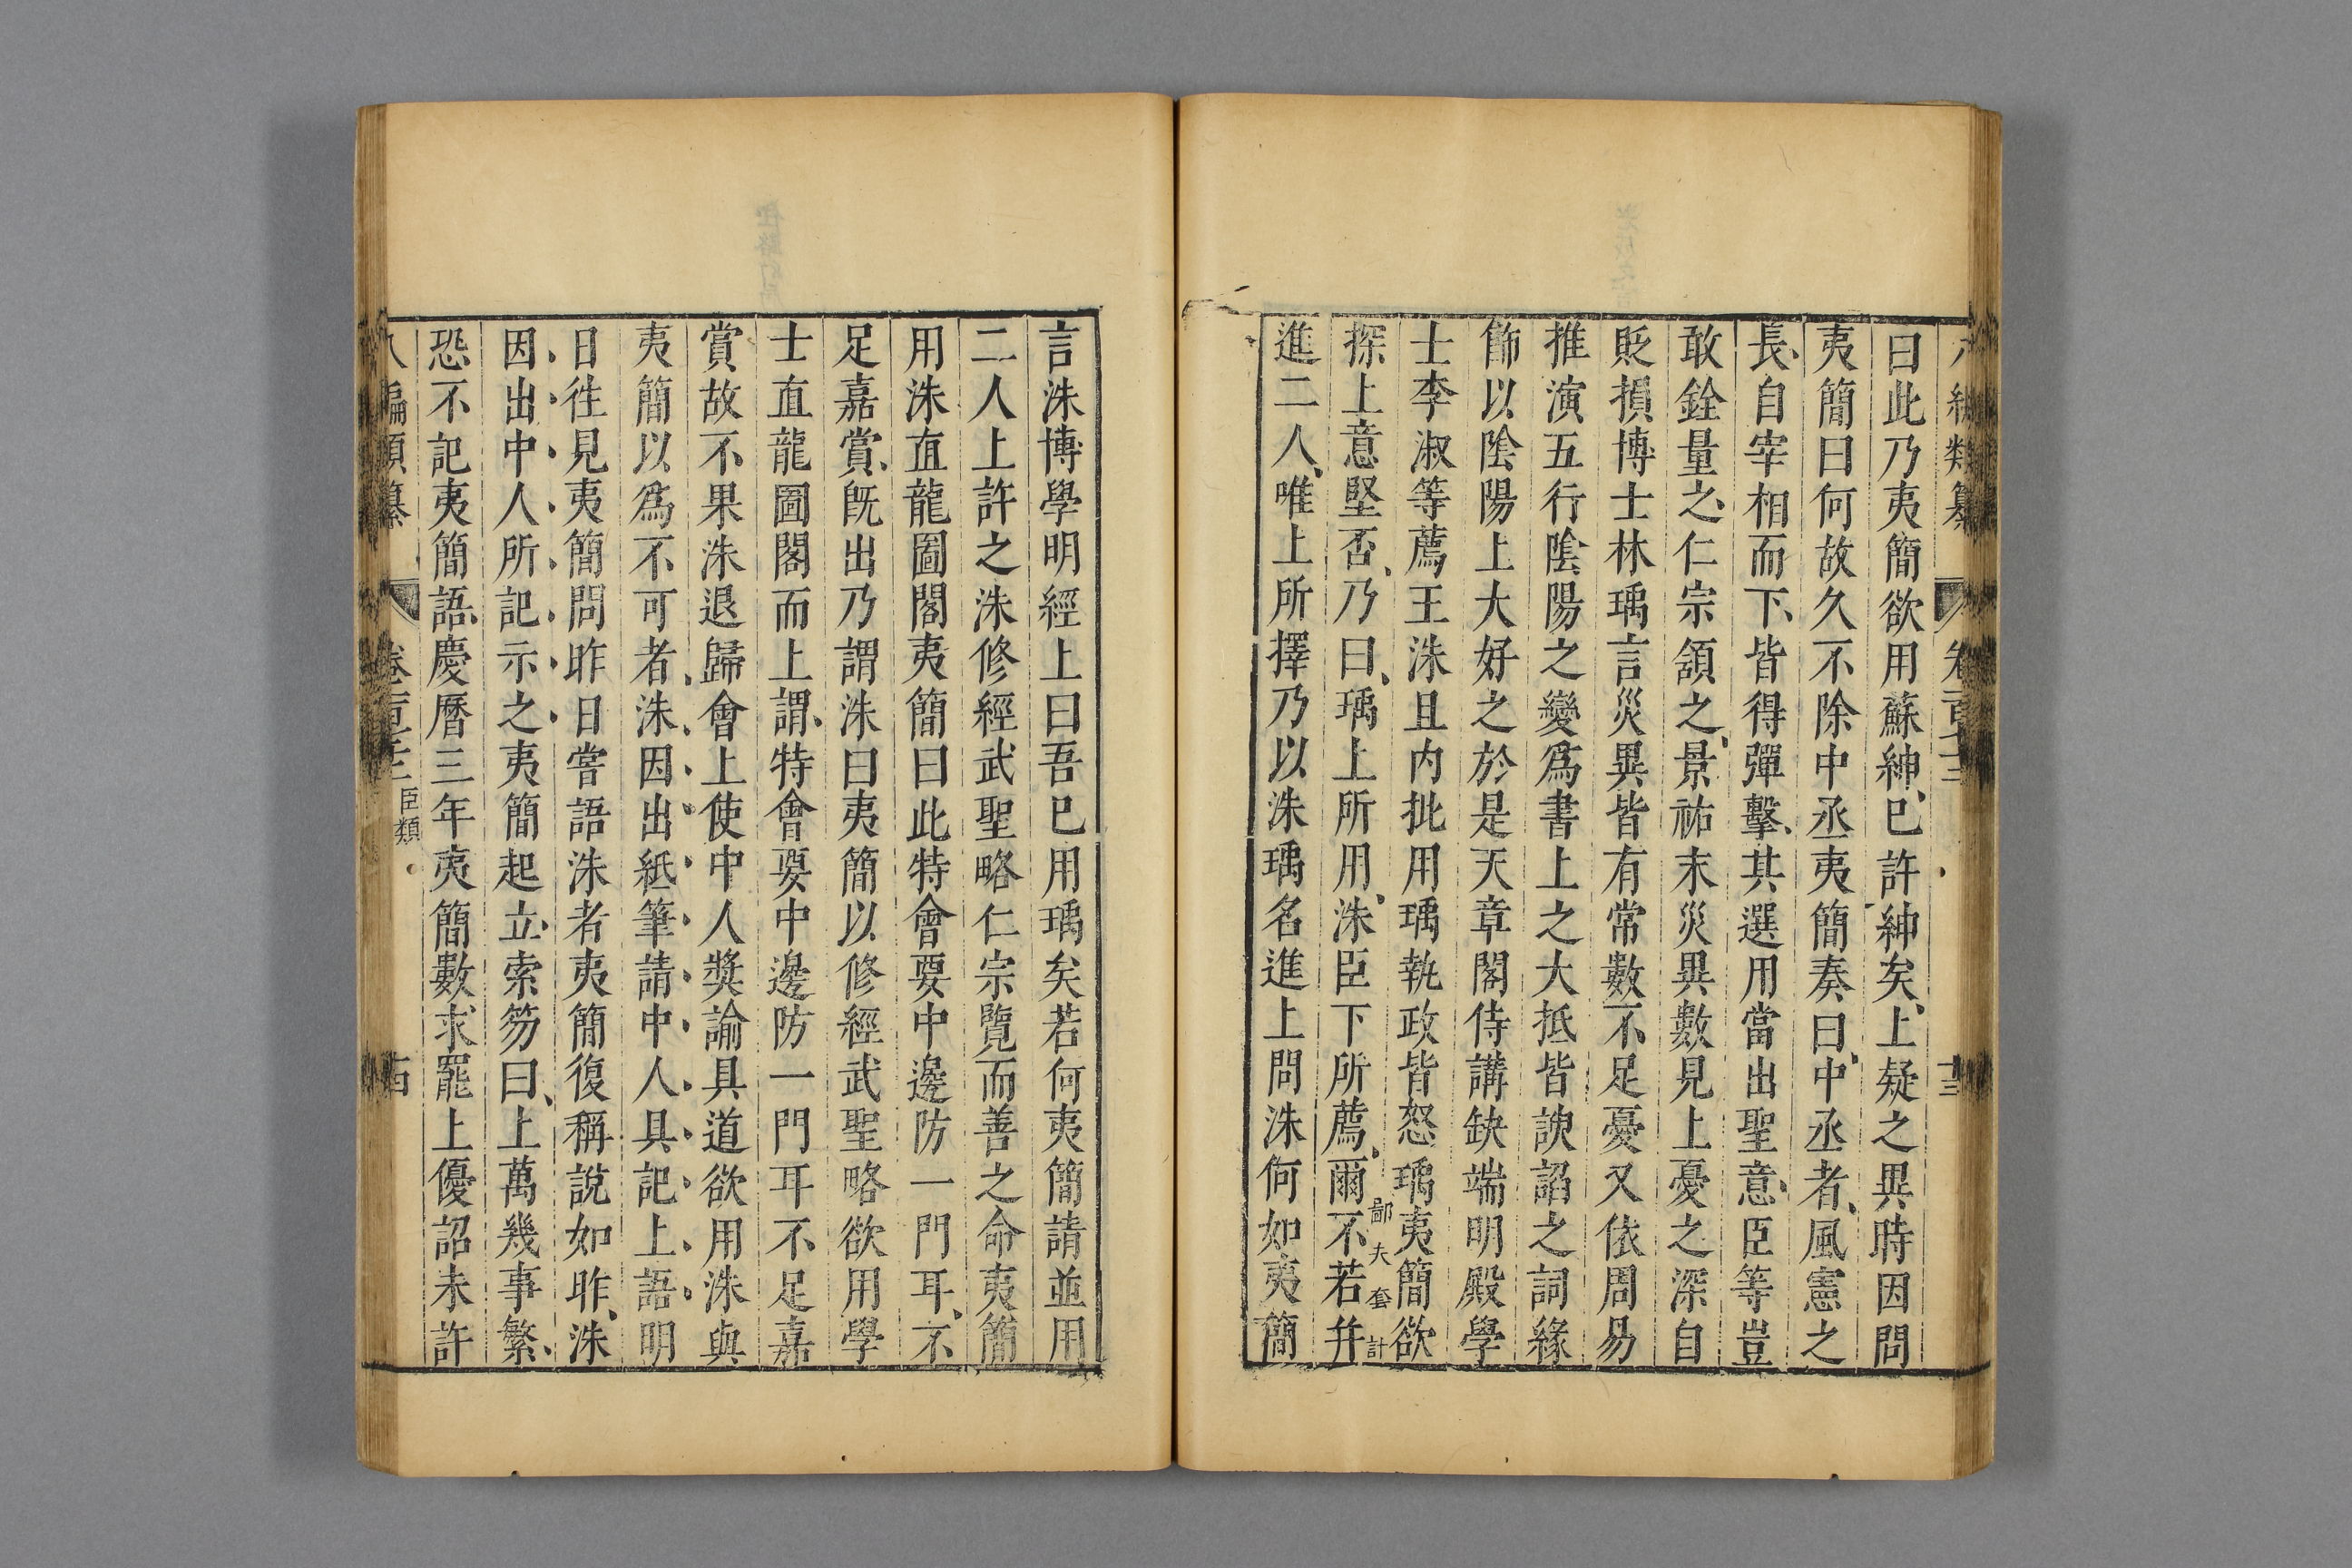 八編類纂 卷一百十三 十三
曰此乃夷簡欲用蘇紳已許紳矣上疑之異時因問
夷簡曰何故久不除中丞夷簡奏曰中丞者風憲之
長自宰相而下皆得彈擊其選用當出聖意臣等豈
敢銓量之仁宗頷之景祐末災異數見上憂之深自
貶損博士林瑀言災異皆有常數不足憂又依周易
推演五行陰陽之變爲書上之大抵皆諛諂之詞緣
飾以陰陽上大好之於是天章閣侍講缺端明殿學
士李淑等薦王洙且內批用瑀執政皆怒瑀夷簡欲
鄙夫套計
探上意堅否乃曰瑀上所用洙臣下所薦爾不若幷
進二人唯上所擇乃以洙瑀名進上問洙何如夷簡
言洙博學明經上曰吾已用瑀矣若何夷簡請並用
二人上許之洙修經武聖略仁宗覽而善之命夷簡
用洙直龍圖閣夷簡曰此特會要中邊防一門耳不
足嘉賞旣出乃謂洙曰夷簡以修經武聖略欲用學
士直龍圖閣而上謂特會要中邊防一門耳不足嘉
賞故不果洙退歸會上使中人獎諭具道欲用洙與
夷簡以爲不可者洙因出紙筆請中人具記上語明
日徃見夷簡問昨日嘗語洙者夷簡復稱說如昨洙
因出中人所記示之夷簡起立索笏曰上萬幾事繁
恐不記夷簡語慶曆三年夷簡數求罷上優詔未許
八編類纂 臣類 古